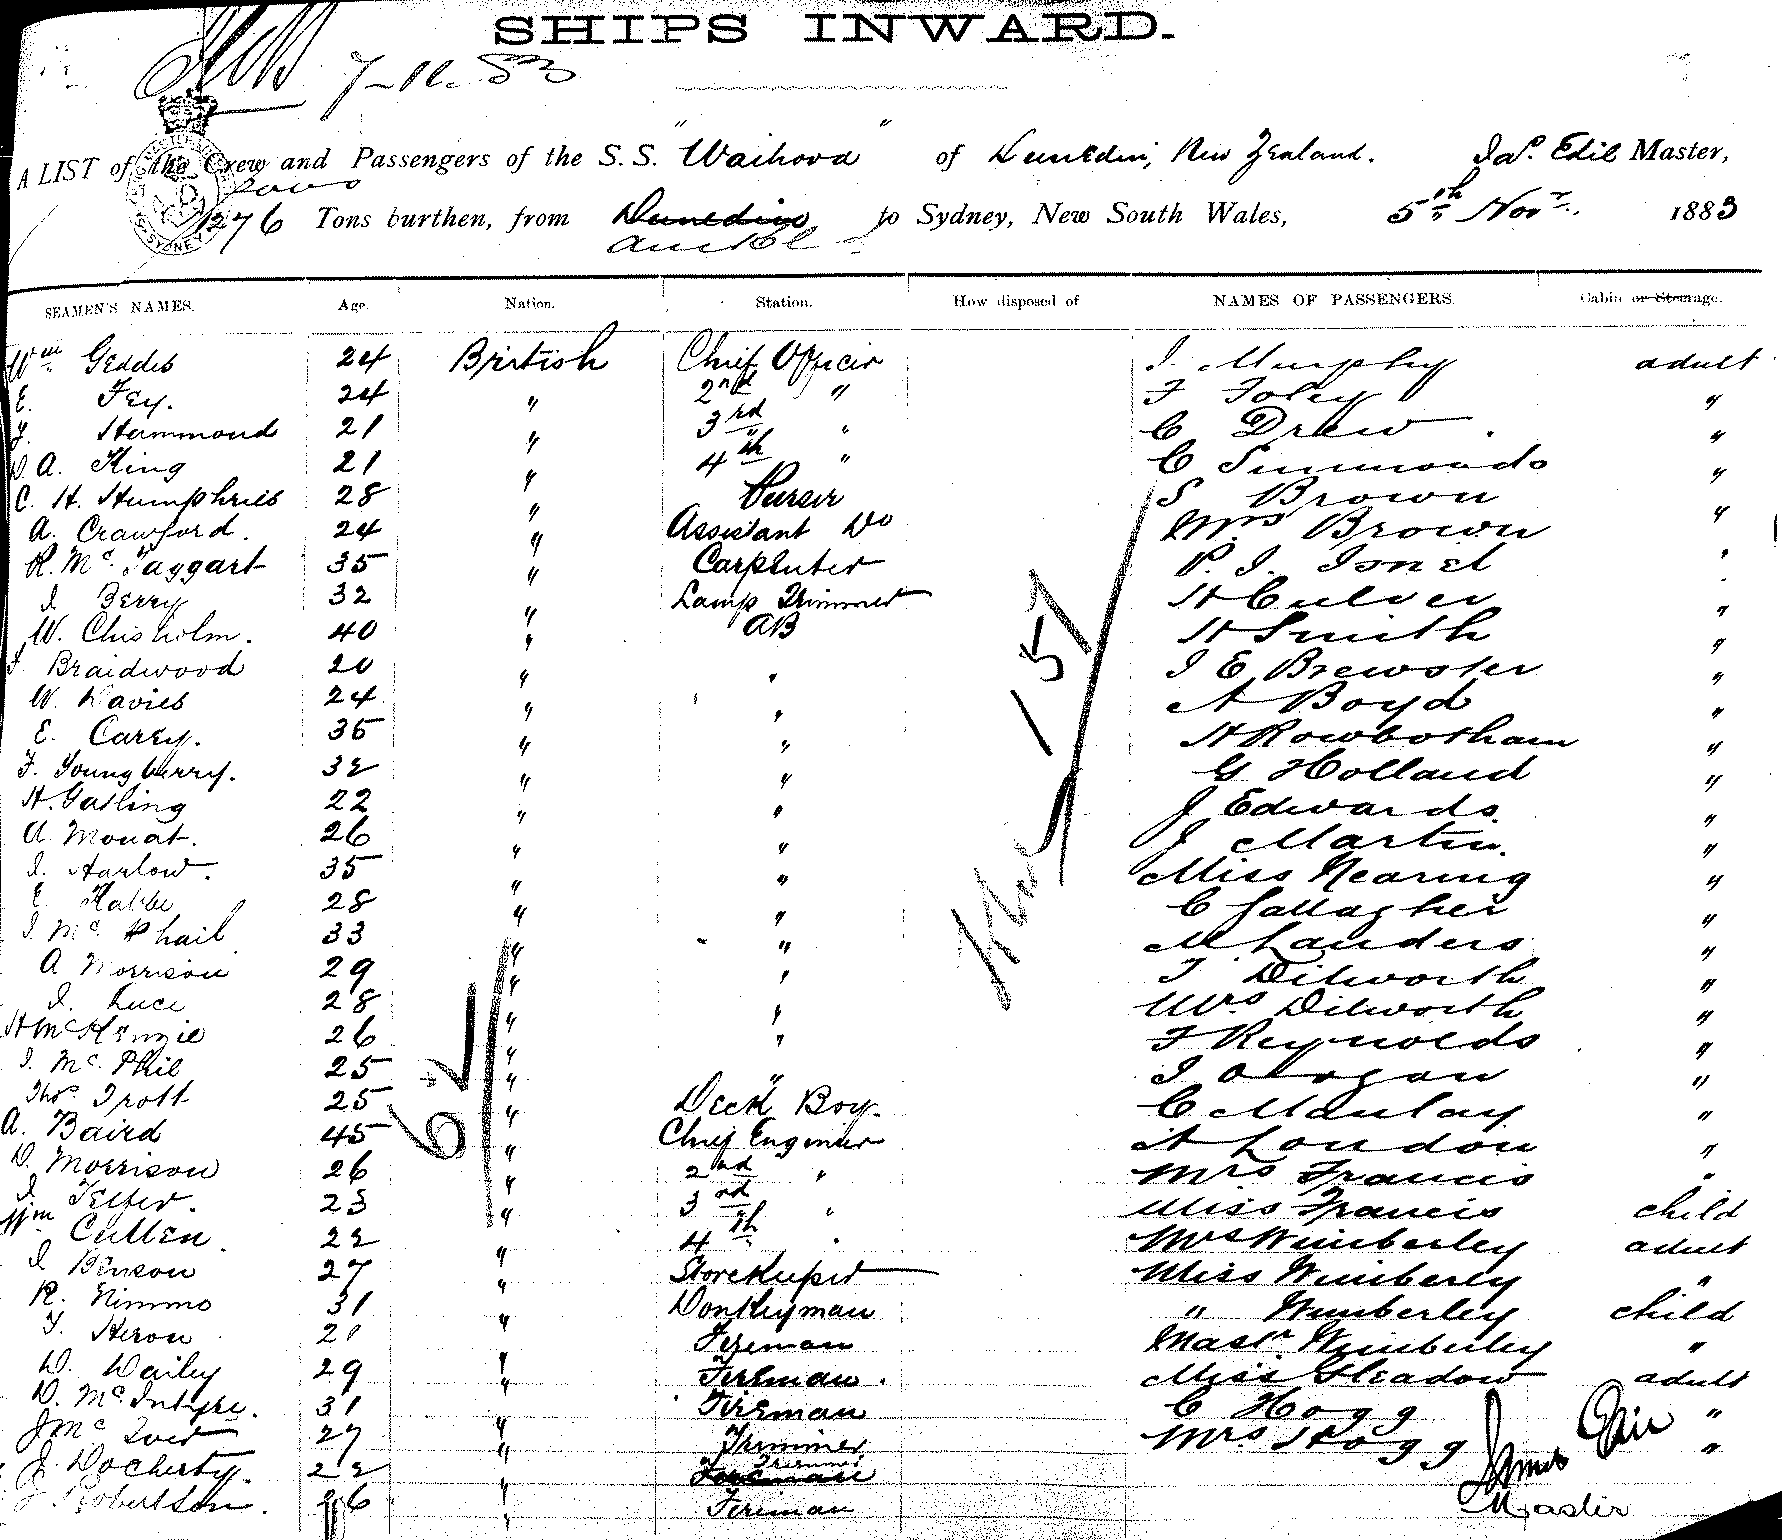 SHIPS INWARD.
7-11-83
A LIST of the Crew and Passengers of the S.S. "Waihora" of Dunedin, New Zealand. Jas. Edie Master,
1276 Tons burthen, from Dunedin to Sydney, New South Wales, 5th Novr. 1883
Auckl
SEAMEN'S NAMES. Age. Nation. Station. How disposed of NAMES OF PASSENGERS. Cabin or Steerage.
Wm Geddes 24 British Chief Officer J. Murphy adult
E. Fey. 24 " 2nd " F Foley "
J. Hammond 21 " 3rd " C Drew "
D A. King 21 " 4th " C Simmonds "
C. H. Humphries 28 " Purser S Brown "
A. Crawford. 24 " Assistant Do Mrs Brown "
R. McTaggart 35 " Carpenter P. J. "
J. Berry 32 " Lamp Trimmer H Culver "
W. Chisholm. 40 " AB H Smith "
J Braidwood 20 " " J E Brewster "
W. Davies 24 " " A Boyd "
E. Carey. 35 " " H Rowbotham "
F. Youngberry. 32 " " G Holland "
H. Gatling 22 " " J Edwards "
A Mouat. 26 " " J Martin. "
J. Harlow. 35 " " Miss Nearing "
E 28 " " C Gallagher "
J. McPhail 33 " " M Landers "
A Morrison 29 " " T Dilworth "
J. Luce 28 " " Mrs Dilworth "
H McKenzie 26 " " F Reynolds "
J. McPhie 25 " " J "
Thos. Trott 25 " Deck Boy. C Maulay "
A. Baird 45 " Chief Engineer A London "
D. Morrison 26 " 2nd " Mrs Francis "
J. Telfer. 23 " 3rd " Miss Francis child
Wm Cullen 22 " 4th " Mrs Wimberley adult
J Benson 27 " Storekeeper Miss Wimberley "
R. Nimmo 31 " Donkeyman " Wimberley child
T. Heron 21 " Fireman Mastr Wimberley "
W. Wailey 29 " Fireman. Miss Gleadow adult
D. McIntyre. 31 " Fireman C Hogg "
J Mc 27 " Trimmer Mrs Hogg "
J. Docherty. 22 " Fireman Trimmer
J Robertson. 26 " Fireman
62
157
James Edie
Master